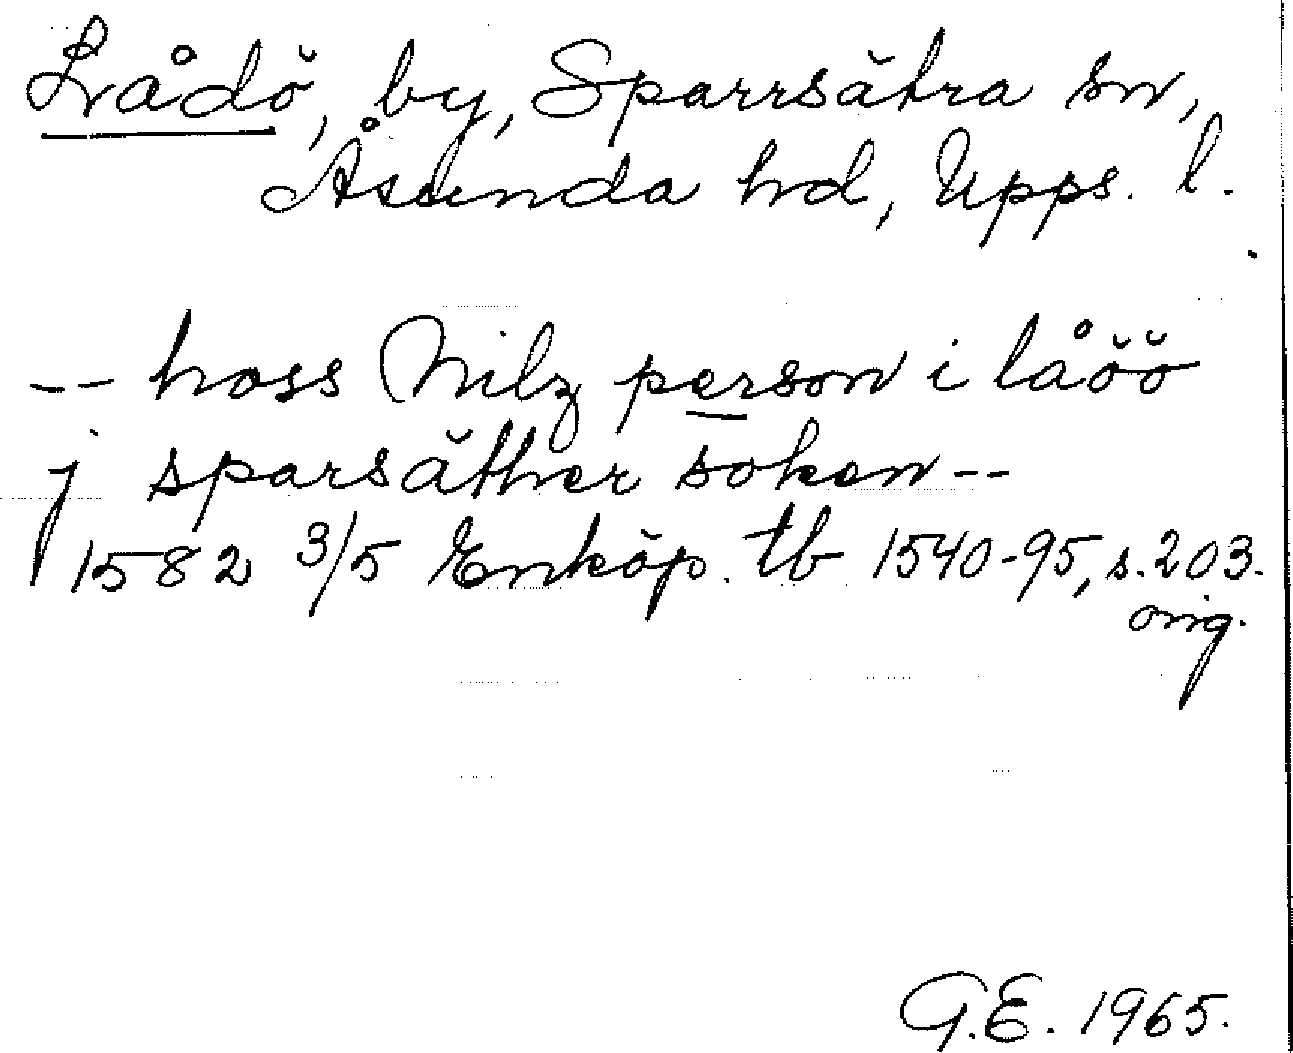 Lådö, by, Sparrsätra sn,
Åsunda hd, Upps. l.
-- hoss Nilz person i låöö
j sparsäther soken --
1582 3/5 Enköp. tb 1540-95, s. 203.
orig.
G.E. 1965.